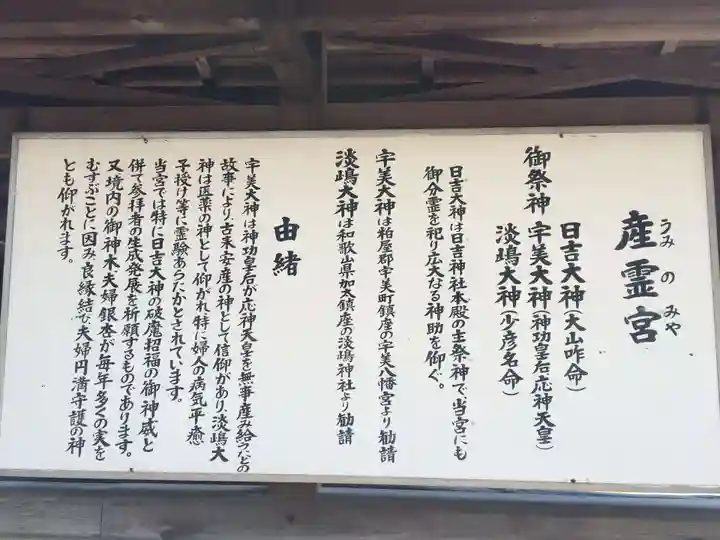 産霊宮
うみのみや
御祭神 日吉大神(大山咋命)
宇美大神(神功皇后、応神天皇)
淡嶋大神(少彦名命)
日吉大神は日吉神社本殿の主祭神で、当宮にも
御分霊を祀り広大なる神助を仰ぐ。
宇美大神は粕屋郡宇美町鎮座の宇美八幡宮より勧請
淡嶋大神は和歌山県加太鎮座の淡嶋神社より勧請
由緒
宇美大神は神功皇后が応神天皇を無事産み給うなどの
故事により、古来安産の神として信仰があり、淡嶋大
神は医薬の神として仰がれ、特に婦人の病気平癒
子授け等に霊験あらたかとされています。
当宮では特に日吉大神の破魔招福の御神威と
併て参拝者の生成発展を祈願するものであります。
又境内の御神木夫婦銀杏が毎年多くの実を
むすぶことに因み良縁結び、夫婦円満守護の神
とも仰がれます。